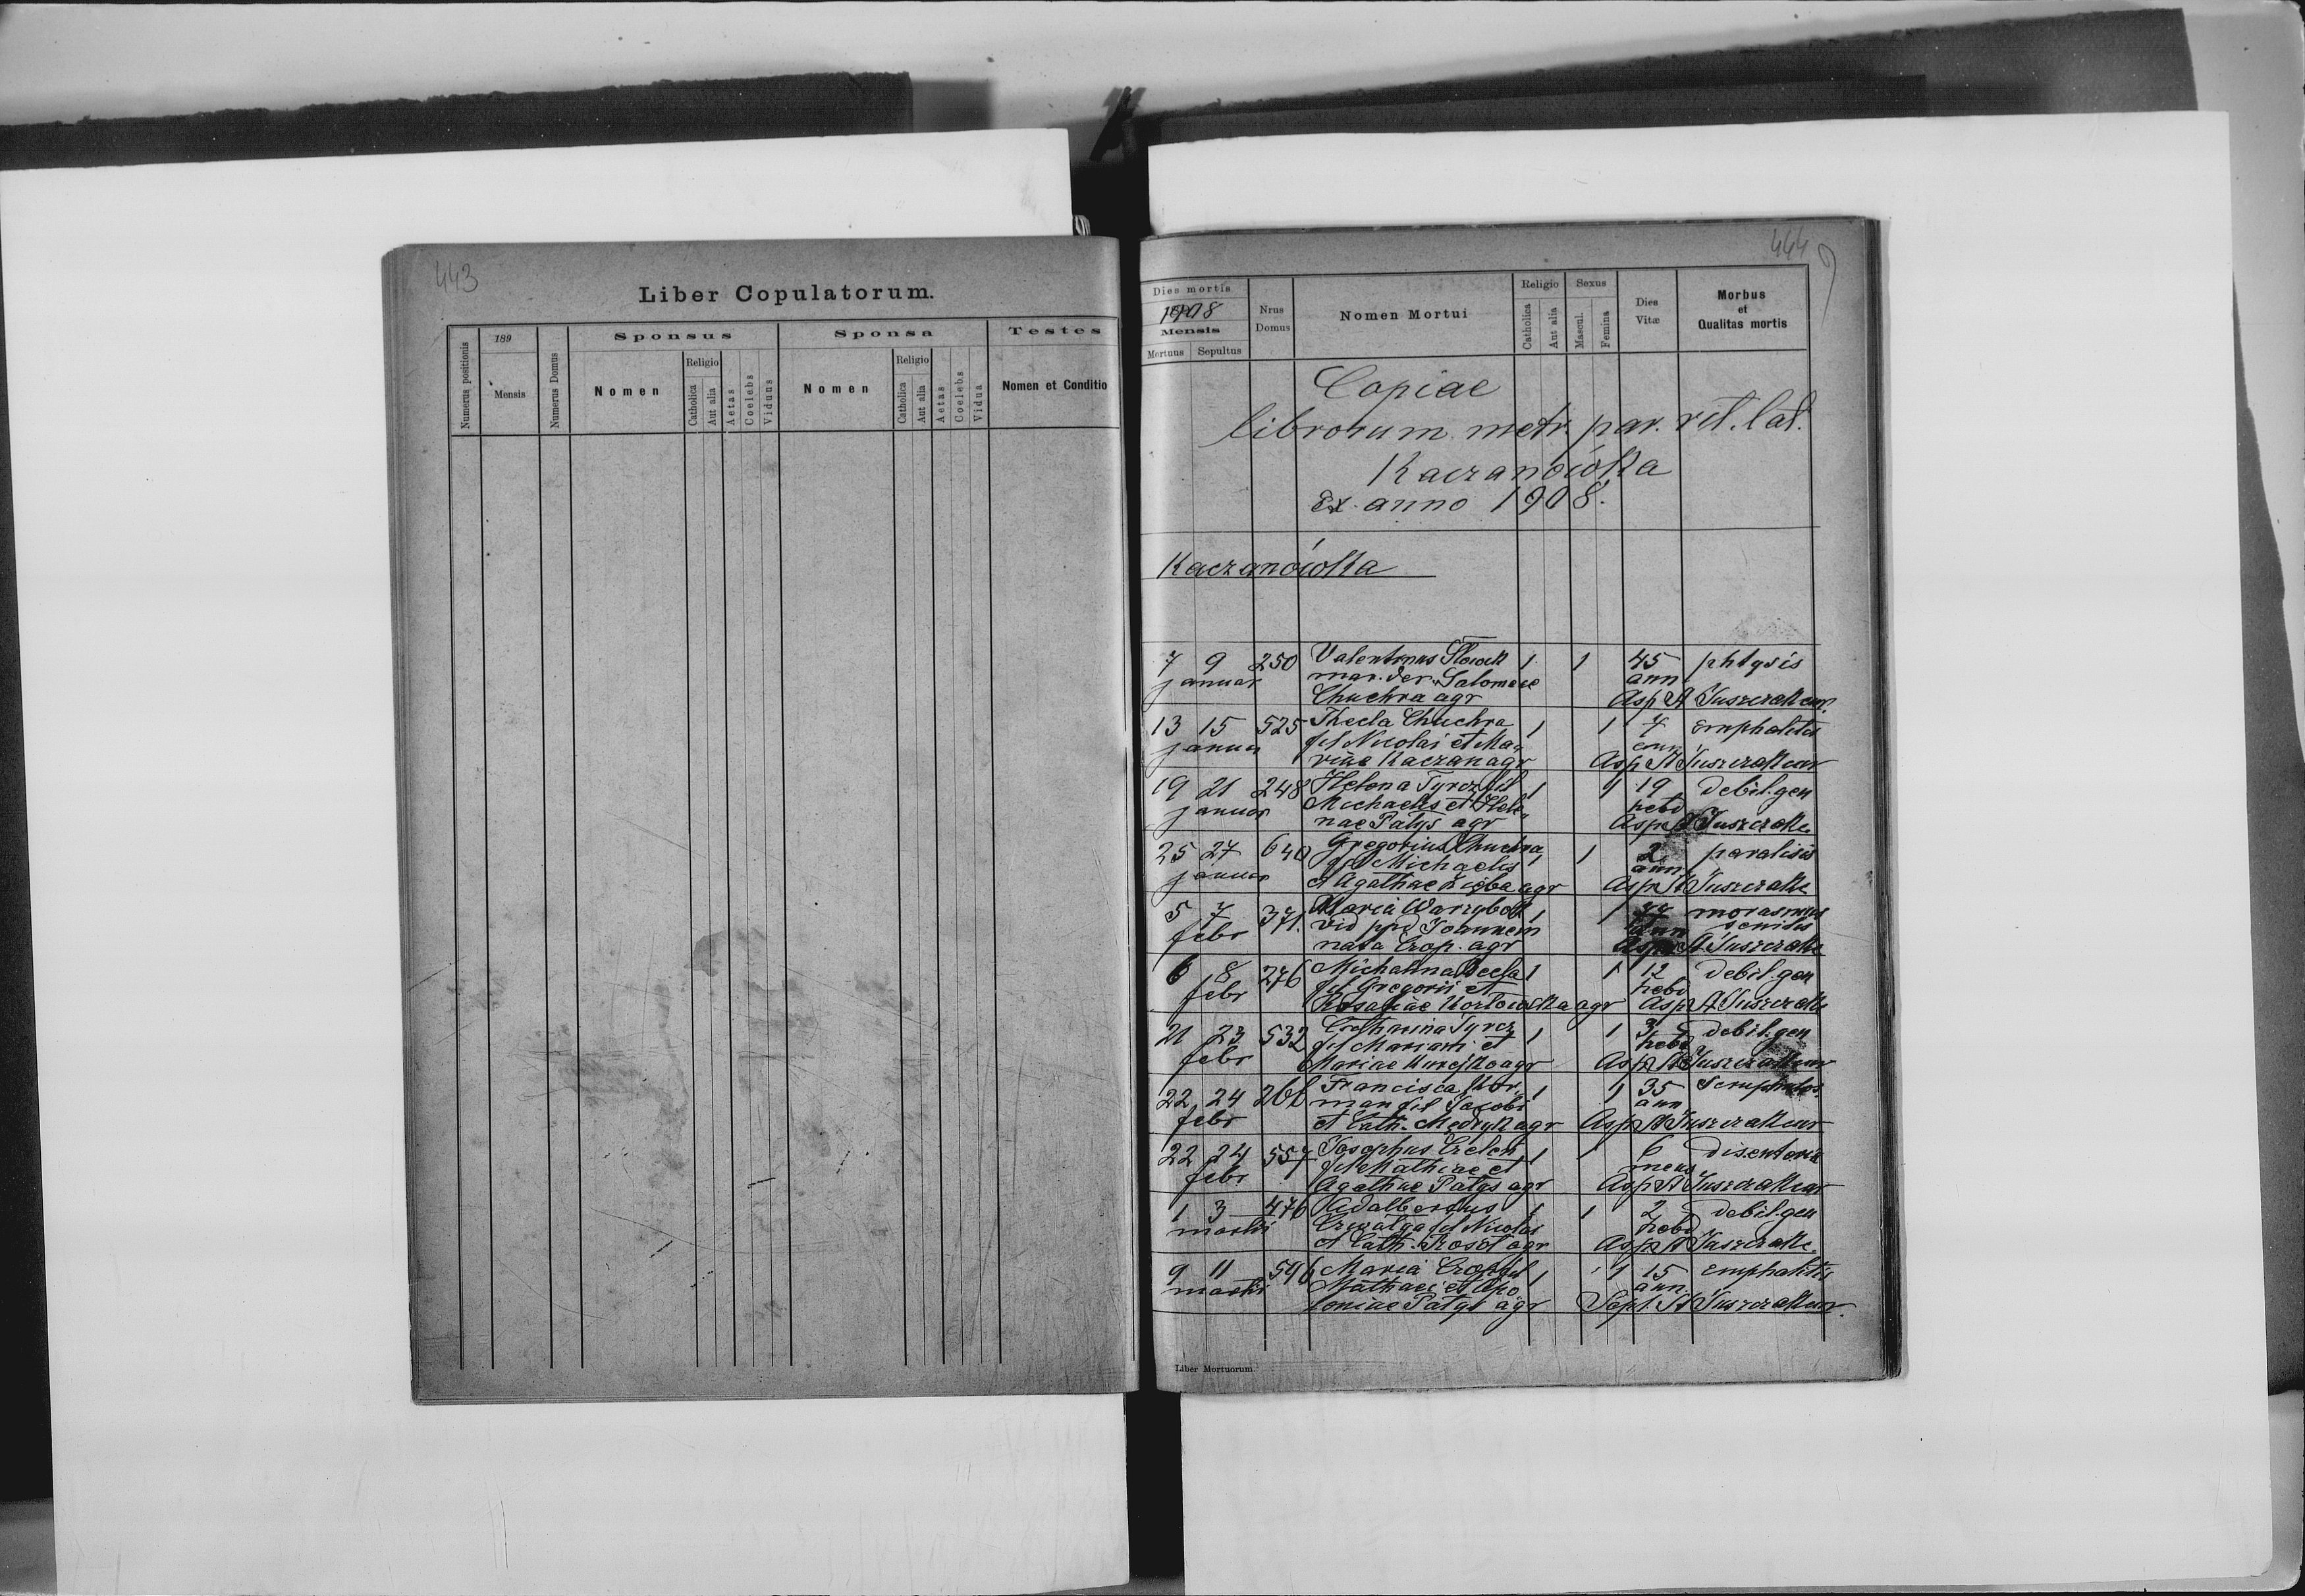 443
Liber Copulatorum.
Numerus positionis
189
Mensis
Numerus Domus
Sponsus
Nomen
Religio
Catholica
Aut alia
Aetas
Coelebs
Viduus
Sponsa
Nomen
Religio
Catholica
Aut alia
Aetas
Coelebs
Vidua
Testes
Nomen et Conditio
444
Dies mortis
1908
Mensis
Mortuus
Sepultus
Nrus
Domus
Nomen Mortui
Religio
Catholica
Aut alia
Sexus
Mascul.
Femina
Dies
Vitæ
Morbus
et
Qualitas mortis
Copiae
librorum metr. par. rit. lat.
Kaczanówka
Ex anno 1908.
Kaczanówka
7 9 250 Valentinus Słowik 1 1 45 phtysis
januar mar. der. Salomeae ann
Chuchra agr Asp A Juszczakiew.
13 15 525 Thecla Chuchra 1 1 7 emphalitis
januar fil Nicolai et Ma-
riae Kaczan agr Asp A Juszczakiew
19 21 248 Helena Tyrcz fil 1 1 19 debil. gen
januar Michaelis et Hele- hebd
nae Patys agr Asp A Juszczakie
25 27 640 Gregorius Chuchra 1 1 2 paralisis
januar fil Michaelis ann
et Agathae Zięba agr Asp A Juszczakie
5 7 371. Maria Warzybok 1 1 77 morasmus
febr vid ppd Joannem ann senilis
nata Czop. agr Asp A Juszczakie
6 8 276 Michalina 1 1 12 debil. gen
febr fil Gregorii et hebd
Rosaliae Kozłowska agr Asp A Juszczakie
21 23 532 Catharina Tyrcz 1 1 3 debil. gen
febr fil Mariani et hebd
Mariae agr Asp A Juszczakiew
22 24 266 Francisca Kor- 1 1 35
febr man fil Jacobi ann
et Cath. Mędryk agr Asp A Juszczakiew
22 24 557 Josephus 1 1 6 disenteria
febr fil Mathiae et mens
Agathae Patys agr Asp A Juszczakiew
1 3 476 Adalbertus 1 1 2 debil. gen
martii fil Nicolai hebd
et Cath. agr Asp A Juszczakie.
9 11 596 Maria Czop fil 1 1 15 emphalitis
martii Mathaei et Apo- ann
loniae Patys agr Sept A Juszczakiew.
Liber Mortuorum.